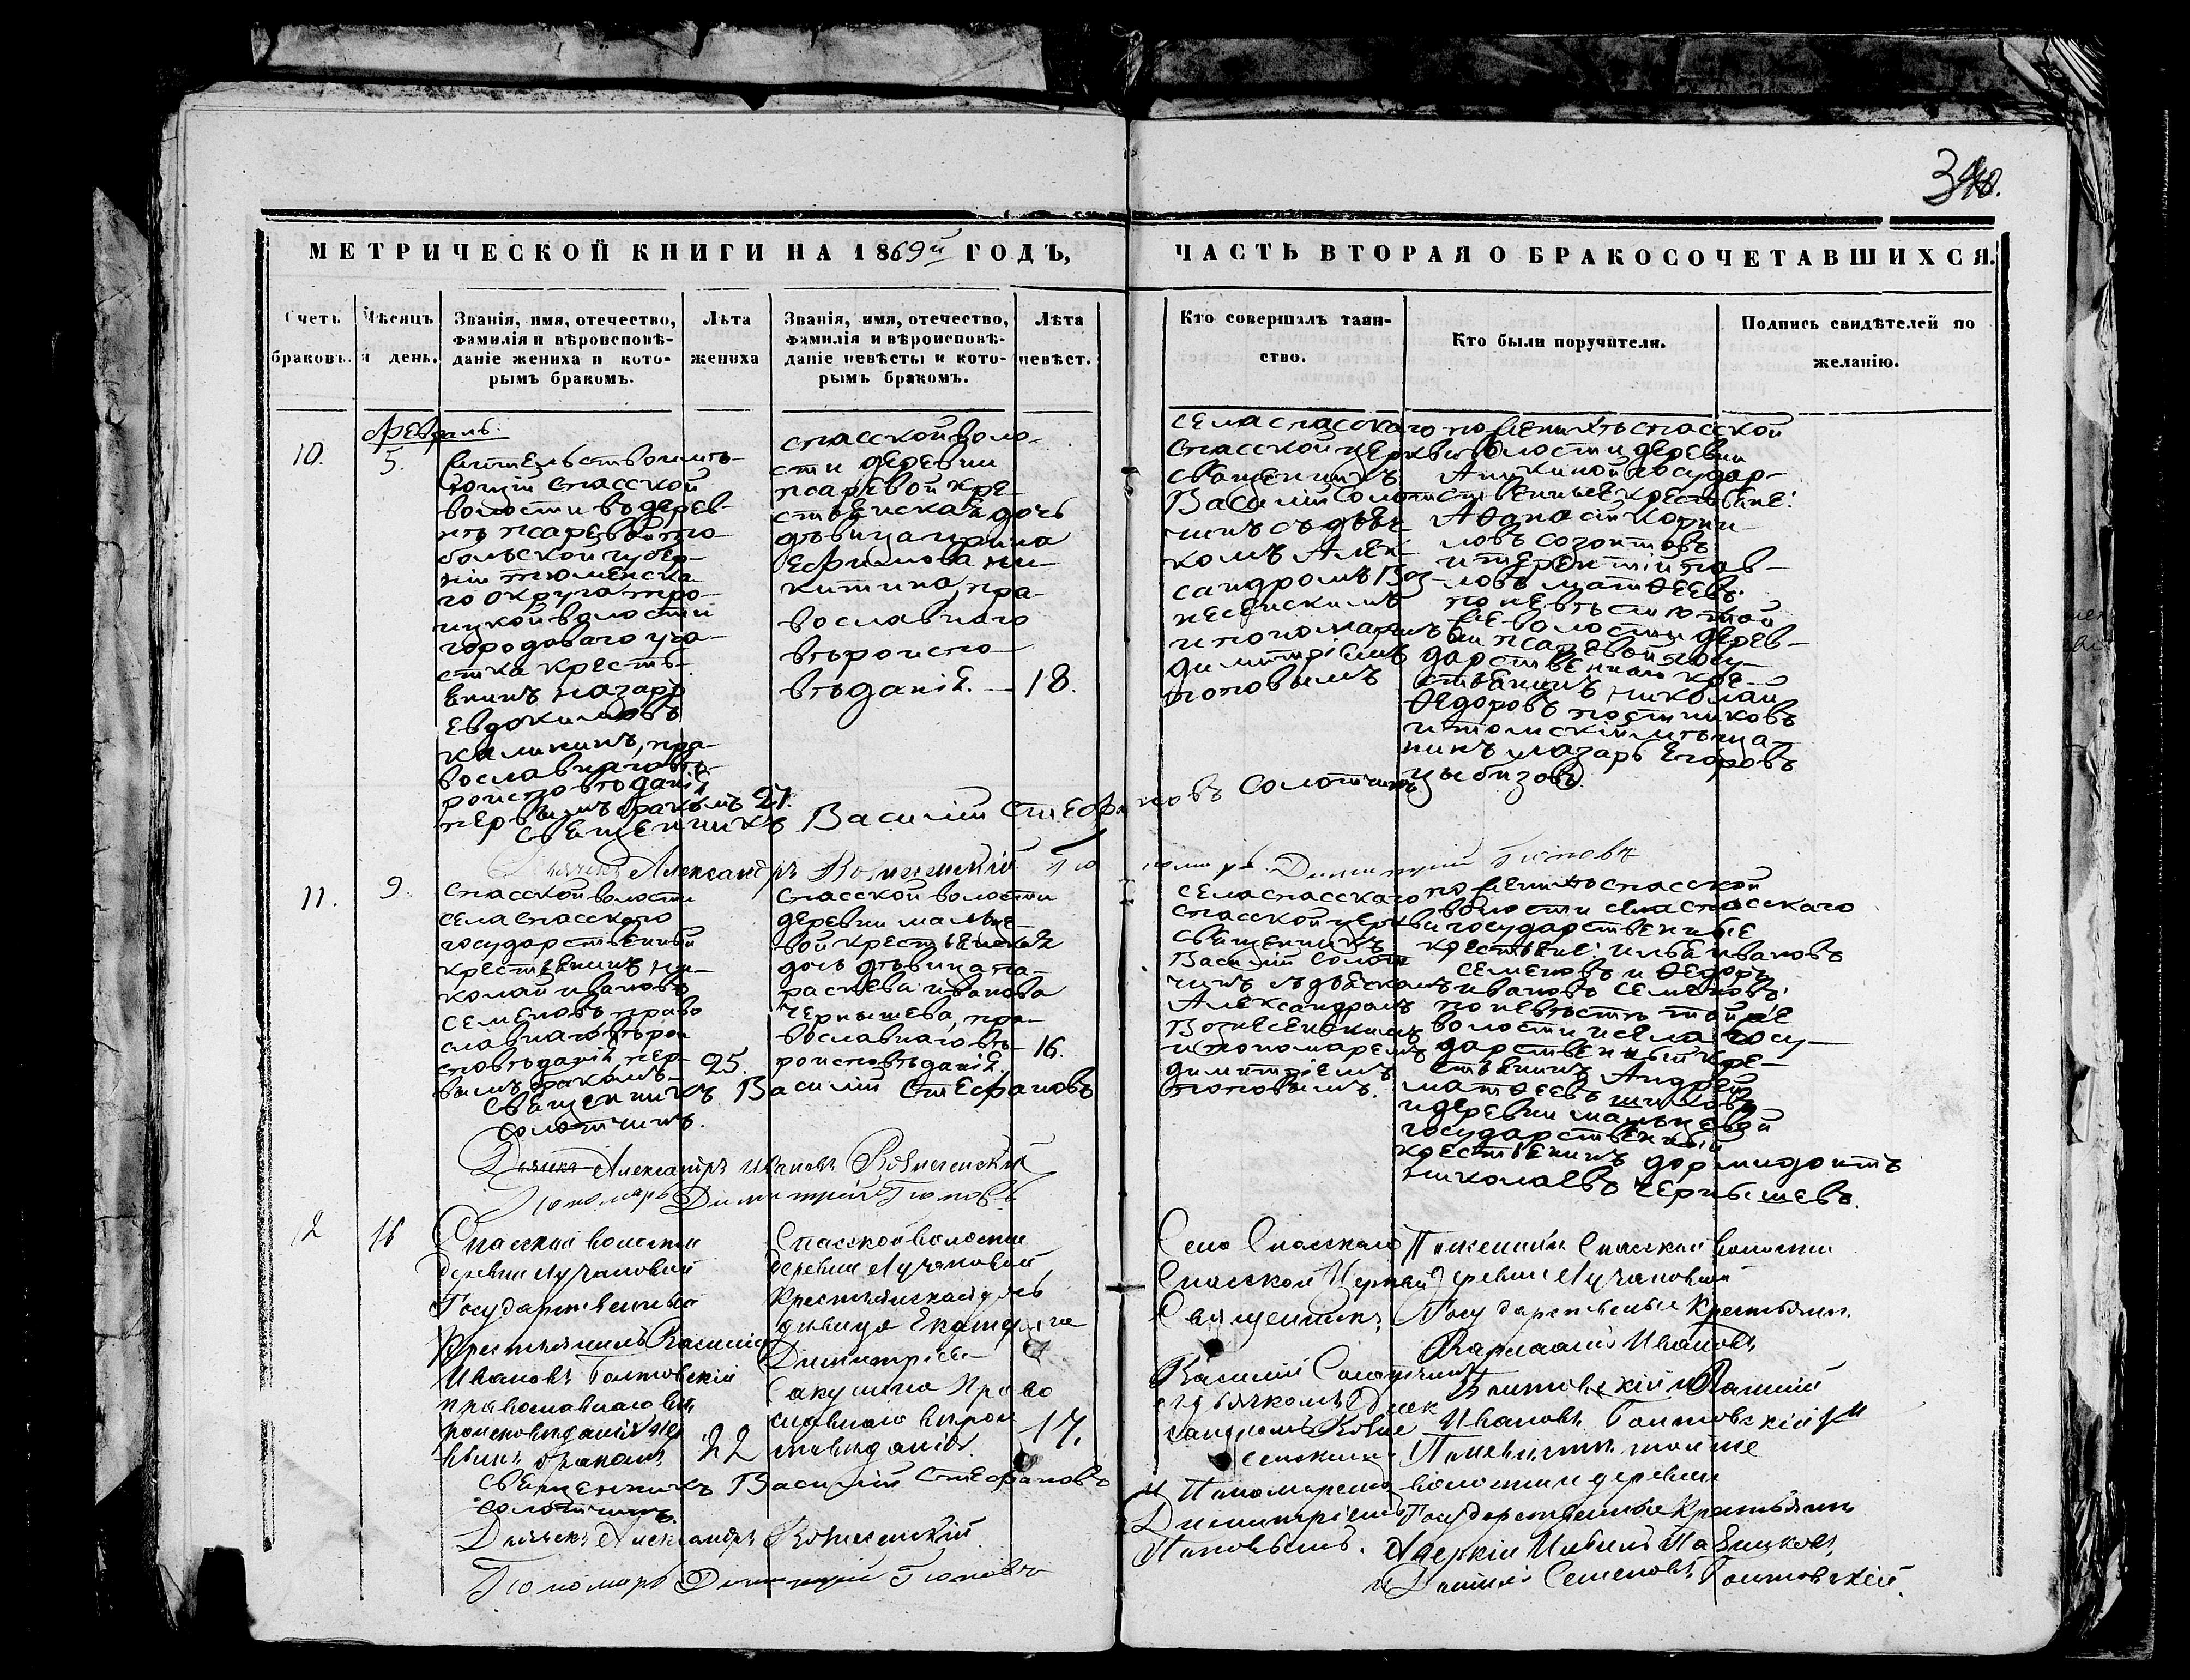 340.
МЕТРИЧЕСКОЙ КНИГИ НА 1869й ГОДЪ,
ЧАСТЬ ВТОРАЯ О БРАКОСОЧЕТАВШИХСЯ.
Счетъ браковъ.
Мѣсяцъ и день.
Званія, имя, отечество,
фамилія и вѣроисповѣ-
даніе жениха и кото-
рымъ бракомъ.
Лѣта
жениха
Званія, имя, отечество,
фамилія и вѣроисповѣ-
даніе невѣсты и кото-
рымъ бракомъ.
Лѣта
невѣст.
Кто совершалъ таин-
ство.
Кто были поручители.
Подпись свидѣтелей по
желанію.
10.
Февраль.
5.
жительствоимѣ-
ющій Спасской
волости въ дерев-
нѣ Псаревой то-
больской губер-
ніи тюменска-
го округа тро-
ицкой волости
городоваго уча-
стка кресть-
енинъ Назаръ
Евдокимовъ
Калининъ, пра-
вославнаго вѣ-
роисповѣданіе
первымъ бракомъ 27.
Спасской воло-
сти деревни
Псаревой кре-
стьенская дочь
дѣвица Ирина
Ефимова Ни-
китина, пра-
вославнаго
вѣроиспо-
вѣданіе. — 18.
села спасскаго
Спасской церкви
священникъ
Василій Солот-
чинъ съ дьяч-
комъ Алек-
сандромъ Воз-
несенскимъ
и пономаремъ
Димитріемъ
Поповымъ
по женихѣ Спасской
волости деревни
Аникиной государ-
ственные крестьене:
Афанасій Корни-
ловъ Созонтовъ
и Терентій Пав-
ловъ Матѳеевъ.
по невѣстѣ той
же волости дерев-
ни Псаревой госу-
дарственной кре-
стьенинъ Николай
Ѳедоровъ Постниковъ
и томскій мѣща-
нинъ Лазарь Егоровъ
Цыбизовъ.
священникъ Василій Стефановъ Солотчинъ
Дьячекъ Александръ Вознесенскій Пономарь Димитрій Поповъ
11.
9.
Спасской волости
села Спасскаго
государственный
крестьенинъ Ни-
колай Ивановъ
Семеновъ право
славнаго вѣрои
сповѣданіе, пер-
вымъ бракомъ — 25.
Спасской волости
деревни Мальце-
вой крестьенская
дочь дѣвица Па-
раскева Иванова
Чернышева, пра-
вославнаго вѣ- 16.
роисповѣданіе.
села спасскаго
Спасской церкви
священникъ
Василій Солот
чинъ съ дьячкомъ
Александромъ
Вознесенскимъ
и пономаремъ
Димитріемъ
Поповымъ.
по женихѣ Спасской
волости села Спасскаго
государственные
крестьене: Илья Ивановъ
Семеновъ и Ѳедоръ
Ивановъ Семеновъ.
по невѣстѣ той же
волости и села госу-
дарственный кре-
стьенинъ Андрей
Матѳеевъ
и деревни Мальцевой
государственный
крестьенинъ Дормидонтъ
Николаевъ Чернышевъ.
священникъ Василій Стефановъ
Солотчинъ.
Дьячекъ Александръ Ивановъ Вознесенскій
Пономарь Димитрій Поповъ
12
16
Спасской волости
деревни Лучановой
Государственный
Крестьянинъ Василій
Ивановъ Болтовскій
православнаго вѣ
роисповѣданія пер
вымъ бракомъ 22
Спасской волости
деревни Лучановой
Крестьянская дочь
дѣвица Екатерина
Димитріева
православнаго вѣрои
сповѣданія. 17.
Села Спасскаго
Спасской Церкви
Священникъ
Василій Солотчинъ
съ дьячкомъ Алек
сандромъ Возне
сенскимъ
и Пономаремъ
Димитріемъ
Поповымъ.
По женихѣ Спасской волости
деревни Лучановой
Государственные Крестьяне.
Варлаамъ Ивановъ
Болтовскій и
Ивановъ Болтовскій
По невѣстѣ той же
волости и деревни
Государственные Крестьяне
Семеновъ Болтовскій.
священникъ Василій Стефановъ
Солотчинъ.
Дьячекъ Александръ Вознесенскій
Пономарь Димитрій Поповъ